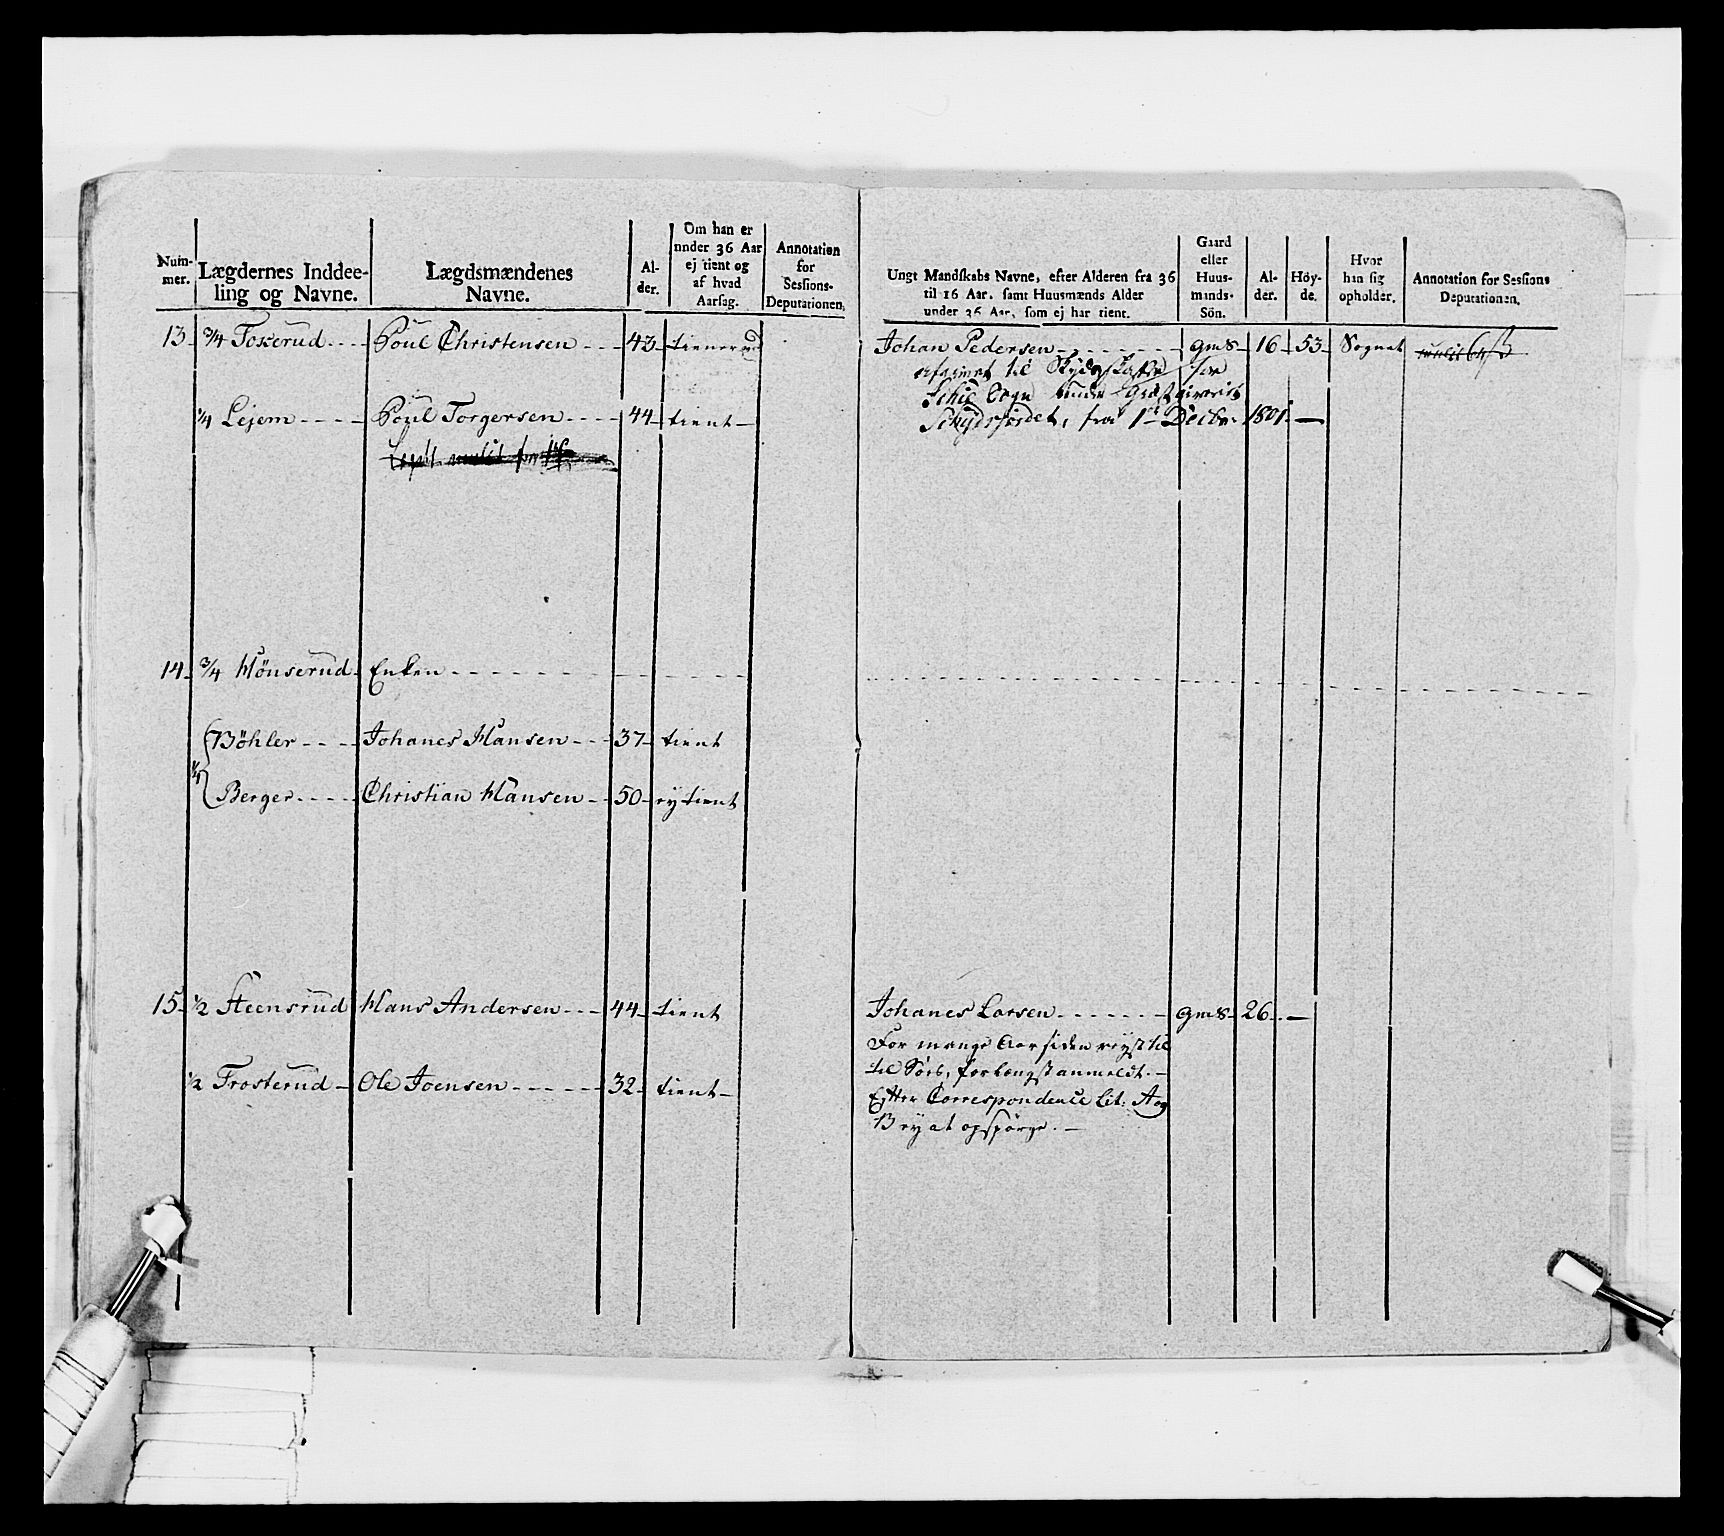 Num-
mer.
Lægdernes Inddee-
ling og Navne.
Lægdsmændenes
Navne.
Al-
der.
Om han er
under 36 Aar
ej tient og
af hvad
Aarsag.
Annotation
for
Sessions-
Deputationen.
13 - 3/4 Foserud - - - Poul Christensen - - - 43 - tiener
1/4 Lejem - - - - Poul Torgersen - - - - 44 - tient -
14 - 3/4 Hönserud - Enken - - - - - -
Böhler - - - - Johanes Hansen - - - 37 - tient
1/4
Berger - - - - Christian Hansen - - 50 - ey tient
15 - 1/2 Steensrud Hans Andersen - - - 44 - tient
1/2 Frosterud - Ole Joensen - - - - - - 32 - tient -
Ungt Mandskabs Navne, efter Alderen fra 36
til 16 Aar, samt Huusmænds Alder
under 36 Aar, som ej har tient.
Gaard
eller
Huus-
mands-
Sön.
Al-
der.
Höy-
de.
Hvor
han sig
opholder.
Annotation for Sessions
Deputationen.
Johan Pedersen - - - - - - - gms - 16 - 53 - Sognet
til for
Schie Sogn under Giæstgiveriet
fra 1te Decbr. 1801. -
Johanes Larsen - - - - - - - gms - 26 - . -
For mange Aar siden reyst til
til Söes, for længst anmeldt. -
Efter Correspondence Lit. A og
B ey at opspörge. -